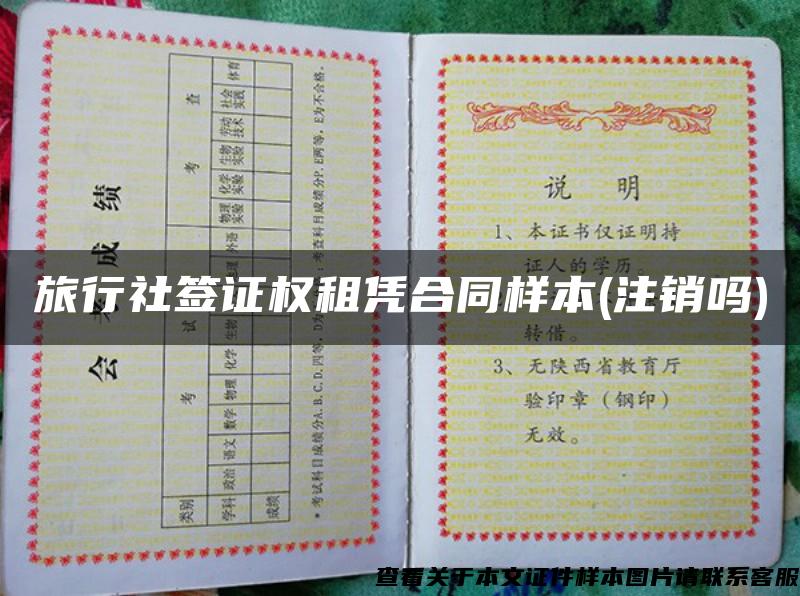 会考成绩
类别 考试 考查
学科 政治 语文 数学 物理 化学 生物 外语 物理实验 化学实验 生物实验 劳动技术 社会实践 体育
成绩
*考试科目成绩分A.B.C.D.四等，考查科目成绩分P、E两等，E为不合格。
旅行社签证权租凭合同样本(注销吗)
说 明
1、本证书仅证明持
证人的学历。
转借。
3、无陕西省教育厅
验印章（钢印）
无效。
查看关于本文证件样本图片请联系客服